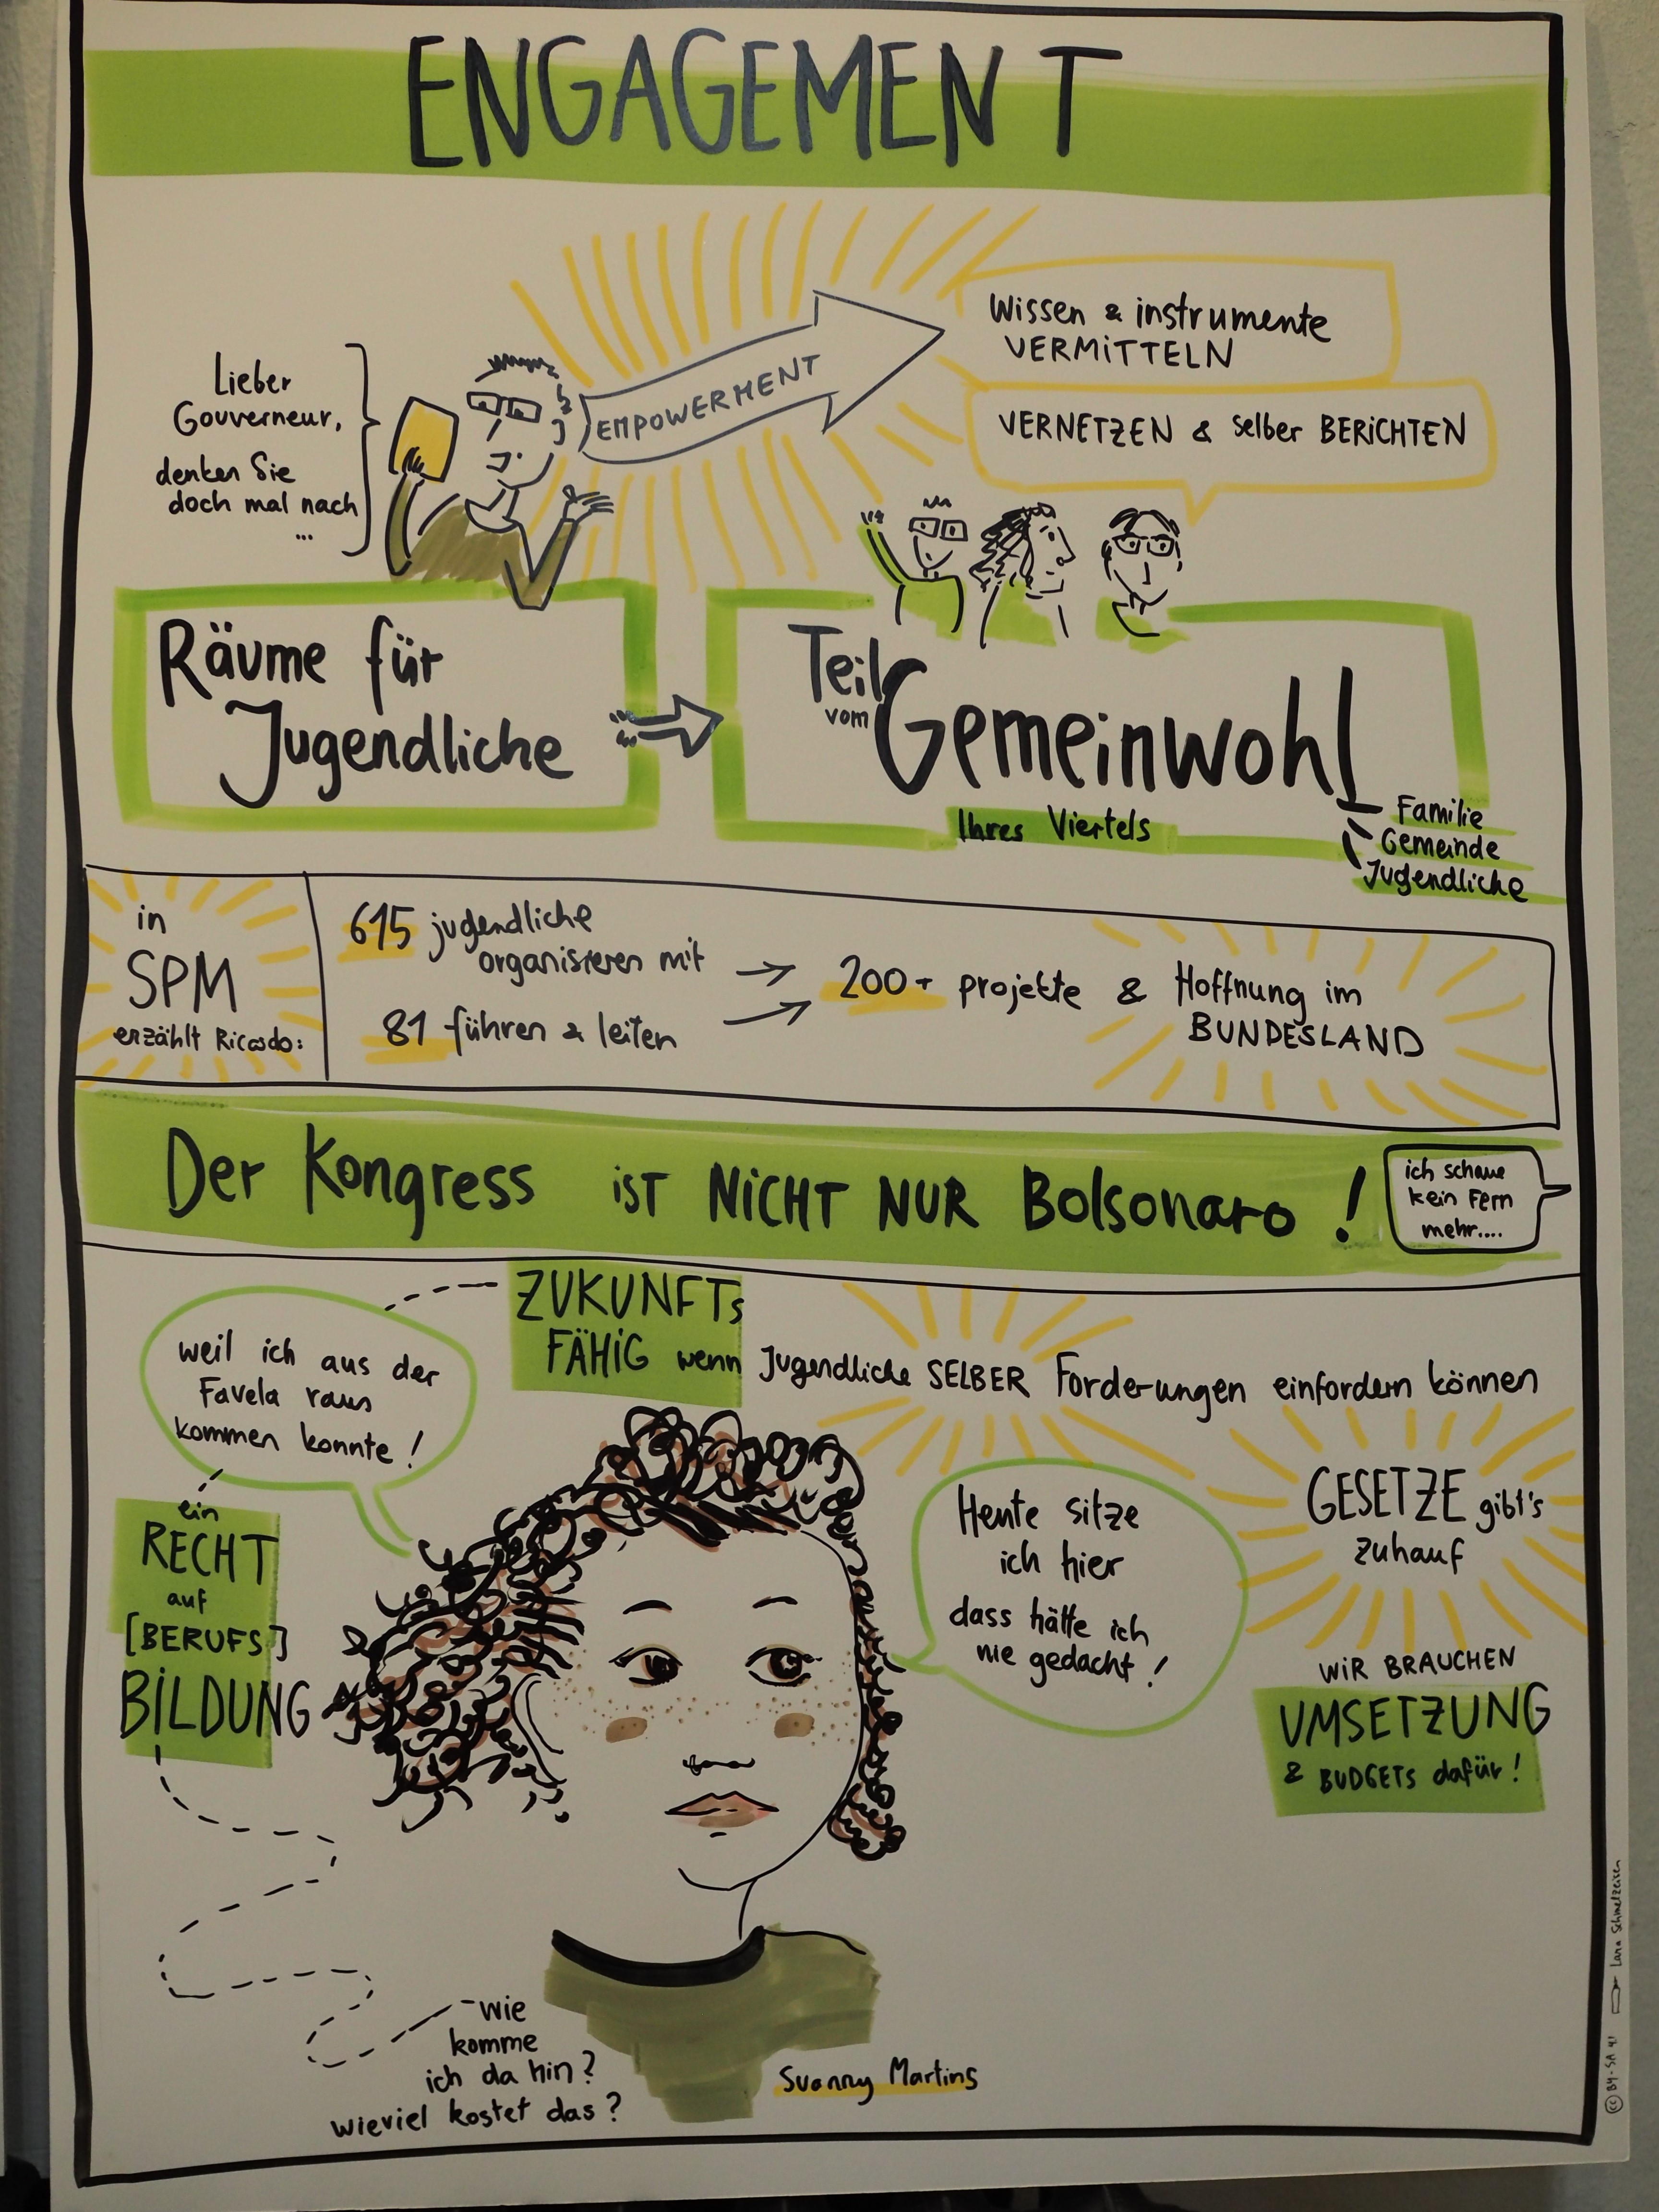 ENGAGEMENT
Lieber
Gouverneur,
denken Sie
doch mal nach
...
EMPOWERMENT
Wissen & instrumente
VERMiTTELN
VERNETZEN & selber BERiCHTEN
Räume für
Jugendliche
Teil
vom Gemeinwohl
Ihres Viertels
Familie
Gemeinde
Jugendliche
in
SPM
erzählt Ricardo:
615 jugendliche
organisieren mit
81 führen & leiten
200+ projekte & Hoffnung im
BUNDESLAND
Der Kongress iST NiCHT NUR Bolsonaro!
ich schaue
kein Fern
mehr....
ZUKUNFTs
FÄHiG wenn Jugendliche SELBER Forderungen einfordern können
weil ich aus der
Favela raus
kommen konnte!
ein
RECHT
auf
[BERUFS]
BiLDUNG
Heute sitze
ich hier
dass hätte ich
nie gedacht!
GESETZE gibt's
zuhauf
WiR BRAUCHEN
UMSETZUNG
& BUDGETs dafür!
wie
komme
ich da hin?
wieviel kostet das?
Svanny Martins
cc BY-SA 4.0 Lara Schmelzeisen